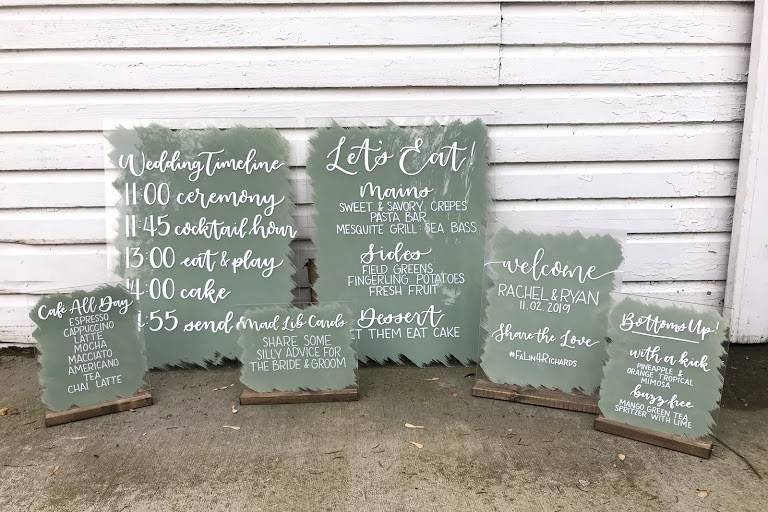 Wedding Timeline
11:00 ceremony
11:45 cocktail hour
13:00 eat & play
4:00 cake
4:55 send
Let's Eat!
Mains
SWEET & SAVORY CREPES
PASTA BAR
MESQUITE GRILL SEA BASS
Sides
FIELD GREENS
FINGERLING POTATOES
FRESH FRUIT
Dessert
THEM EAT CAKE
Cafe All Day
ESPRESSO
CAPPUCCINO
LATTE
MOCHA
MACCIATO
AMERICANO
TEA
CHAI LATTE
Mad Lib Cards
SHARE SOME
SILLY ADVICE FOR
THE BRIDE & GROOM
welcome
RACHEL & RYAN
11.02.2019
Share the Love
#FALIN4RICHARDS
Bottoms Up!
with a kick
PINEAPPLE &
ORANGE TROPICAL
MIMOSA
buzz free
MANGO GREEN TEA
SPRITZER WITH LIME